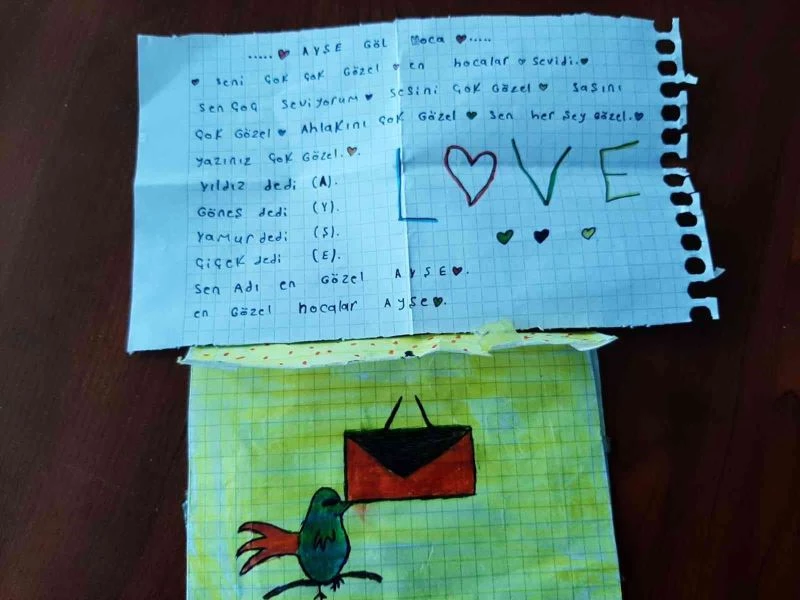 ..... AYŞE GÖL Hoca .....
Seni Çok Çok Gözel en hocalar Sevidi.
Sen Çoç Seviyorum Sesini Çok Gözel Saşını
Çok Gözel Ahlakını Çok Gözel Sen her Şey Gözel.
Yazınız Çok Gözel.
Yıldız dedi (A).
Göneş dedi (Y).
Yamur dedi (Ş).
Çiçek dedi (E).
Sen Adı en Gözel AYŞE.
en Gözel hocalar AYŞE.
LOVE